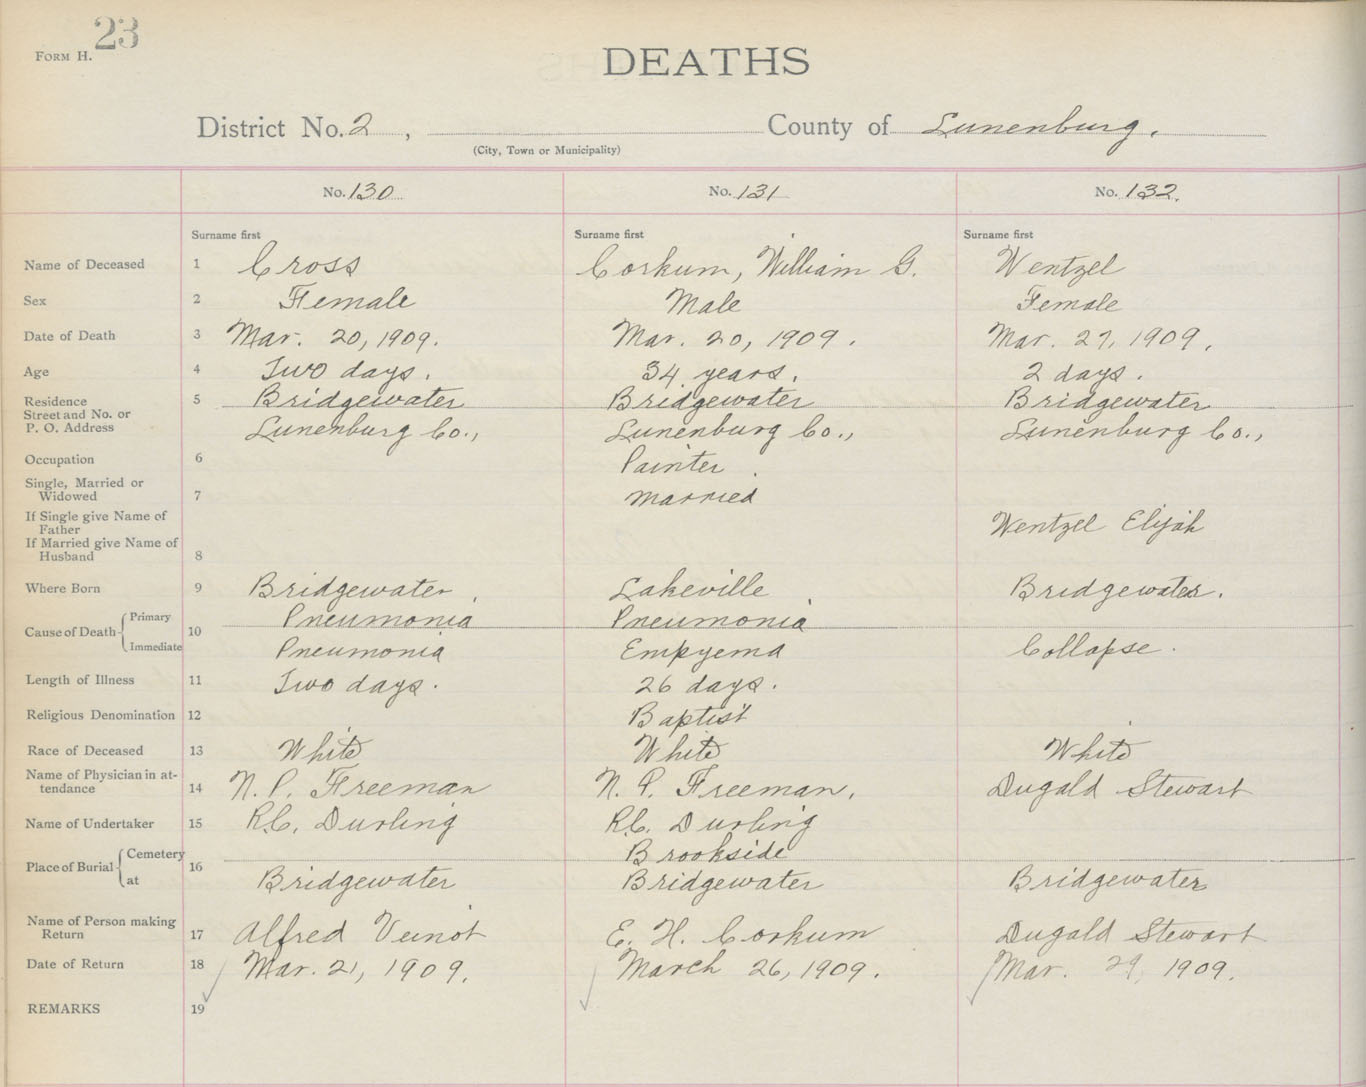 23
FORM H.
DEATHS
District No. 2, County of Lunenburg.
(City, Town or Municipality)
No. 130 No. 131 No. 132.
Surname first Surname first Surname first
Name of Deceased 1 Cross Corkum, William G. Wentzel
Sex 2 Female Male Female
Date of Death 3 Mar. 20, 1909. Mar. 20, 1909. Mar. 27, 1909.
Age 4 Two days. 34 years. 2 days.
Residence 5 Bridgewater Bridgewater Bridgewater
Street and No. or
P. O. Address Lunenburg Co., Lunenburg Co., Lunenburg Co.,
Occupation 6 Painter
Single, Married or
Widowed 7 Married
If Single give Name of
Father Wentzel Elijah
If Married give Name of
Husband 8
Where Born 9 Bridgewater, Lakeville Bridgewater.
Cause of Death Primary 10 Pneumonia Pneumonia
Immediate Pneumonia Empyema Collapse.
Length of Illness 11 Two days. 26 days.
Religious Denomination 12 Baptist
Race of Deceased 13 White White White
Name of Physician in at-
tendance 14 N. P. Freeman N. P. Freeman, Dugald Stewart
Name of Undertaker 15 R.C. Durling R.C. Durling
Place of Burial Cemetery 16 Brookside
at Bridgewater Bridgewater Bridgewater
Name of Person making
Return 17 Alfred Veinot E. H. Corkum Dugald Stewart
Date of Return 18 Mar. 21, 1909. March 26, 1909. Mar. 29, 1909.
REMARKS 19